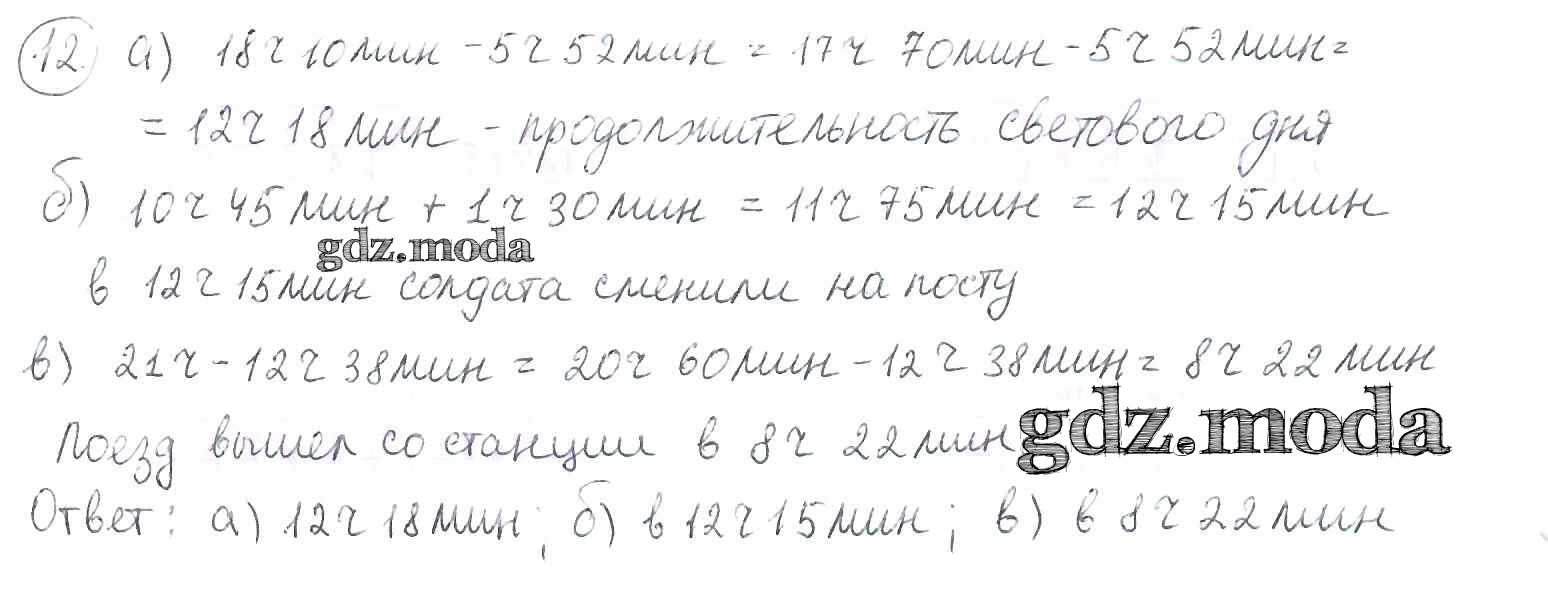 12. а) 18ч 10мин - 5ч 52мин = 17ч 70мин - 5ч 52мин =
= 12ч 18мин - продолжительность светового дня
б) 10ч 45мин + 1ч 30мин = 11ч 75мин = 12ч 15мин
gdz.moda
в 12ч 15мин солдата сменили на посту
в) 21ч - 12ч 38мин = 20ч 60мин - 12ч 38мин = 8ч 22мин
Поезд вышел со станции в 8ч 22мин
gdz.moda
Ответ: а) 12ч 18мин; б) в 12ч 15мин; в) в 8ч 22мин